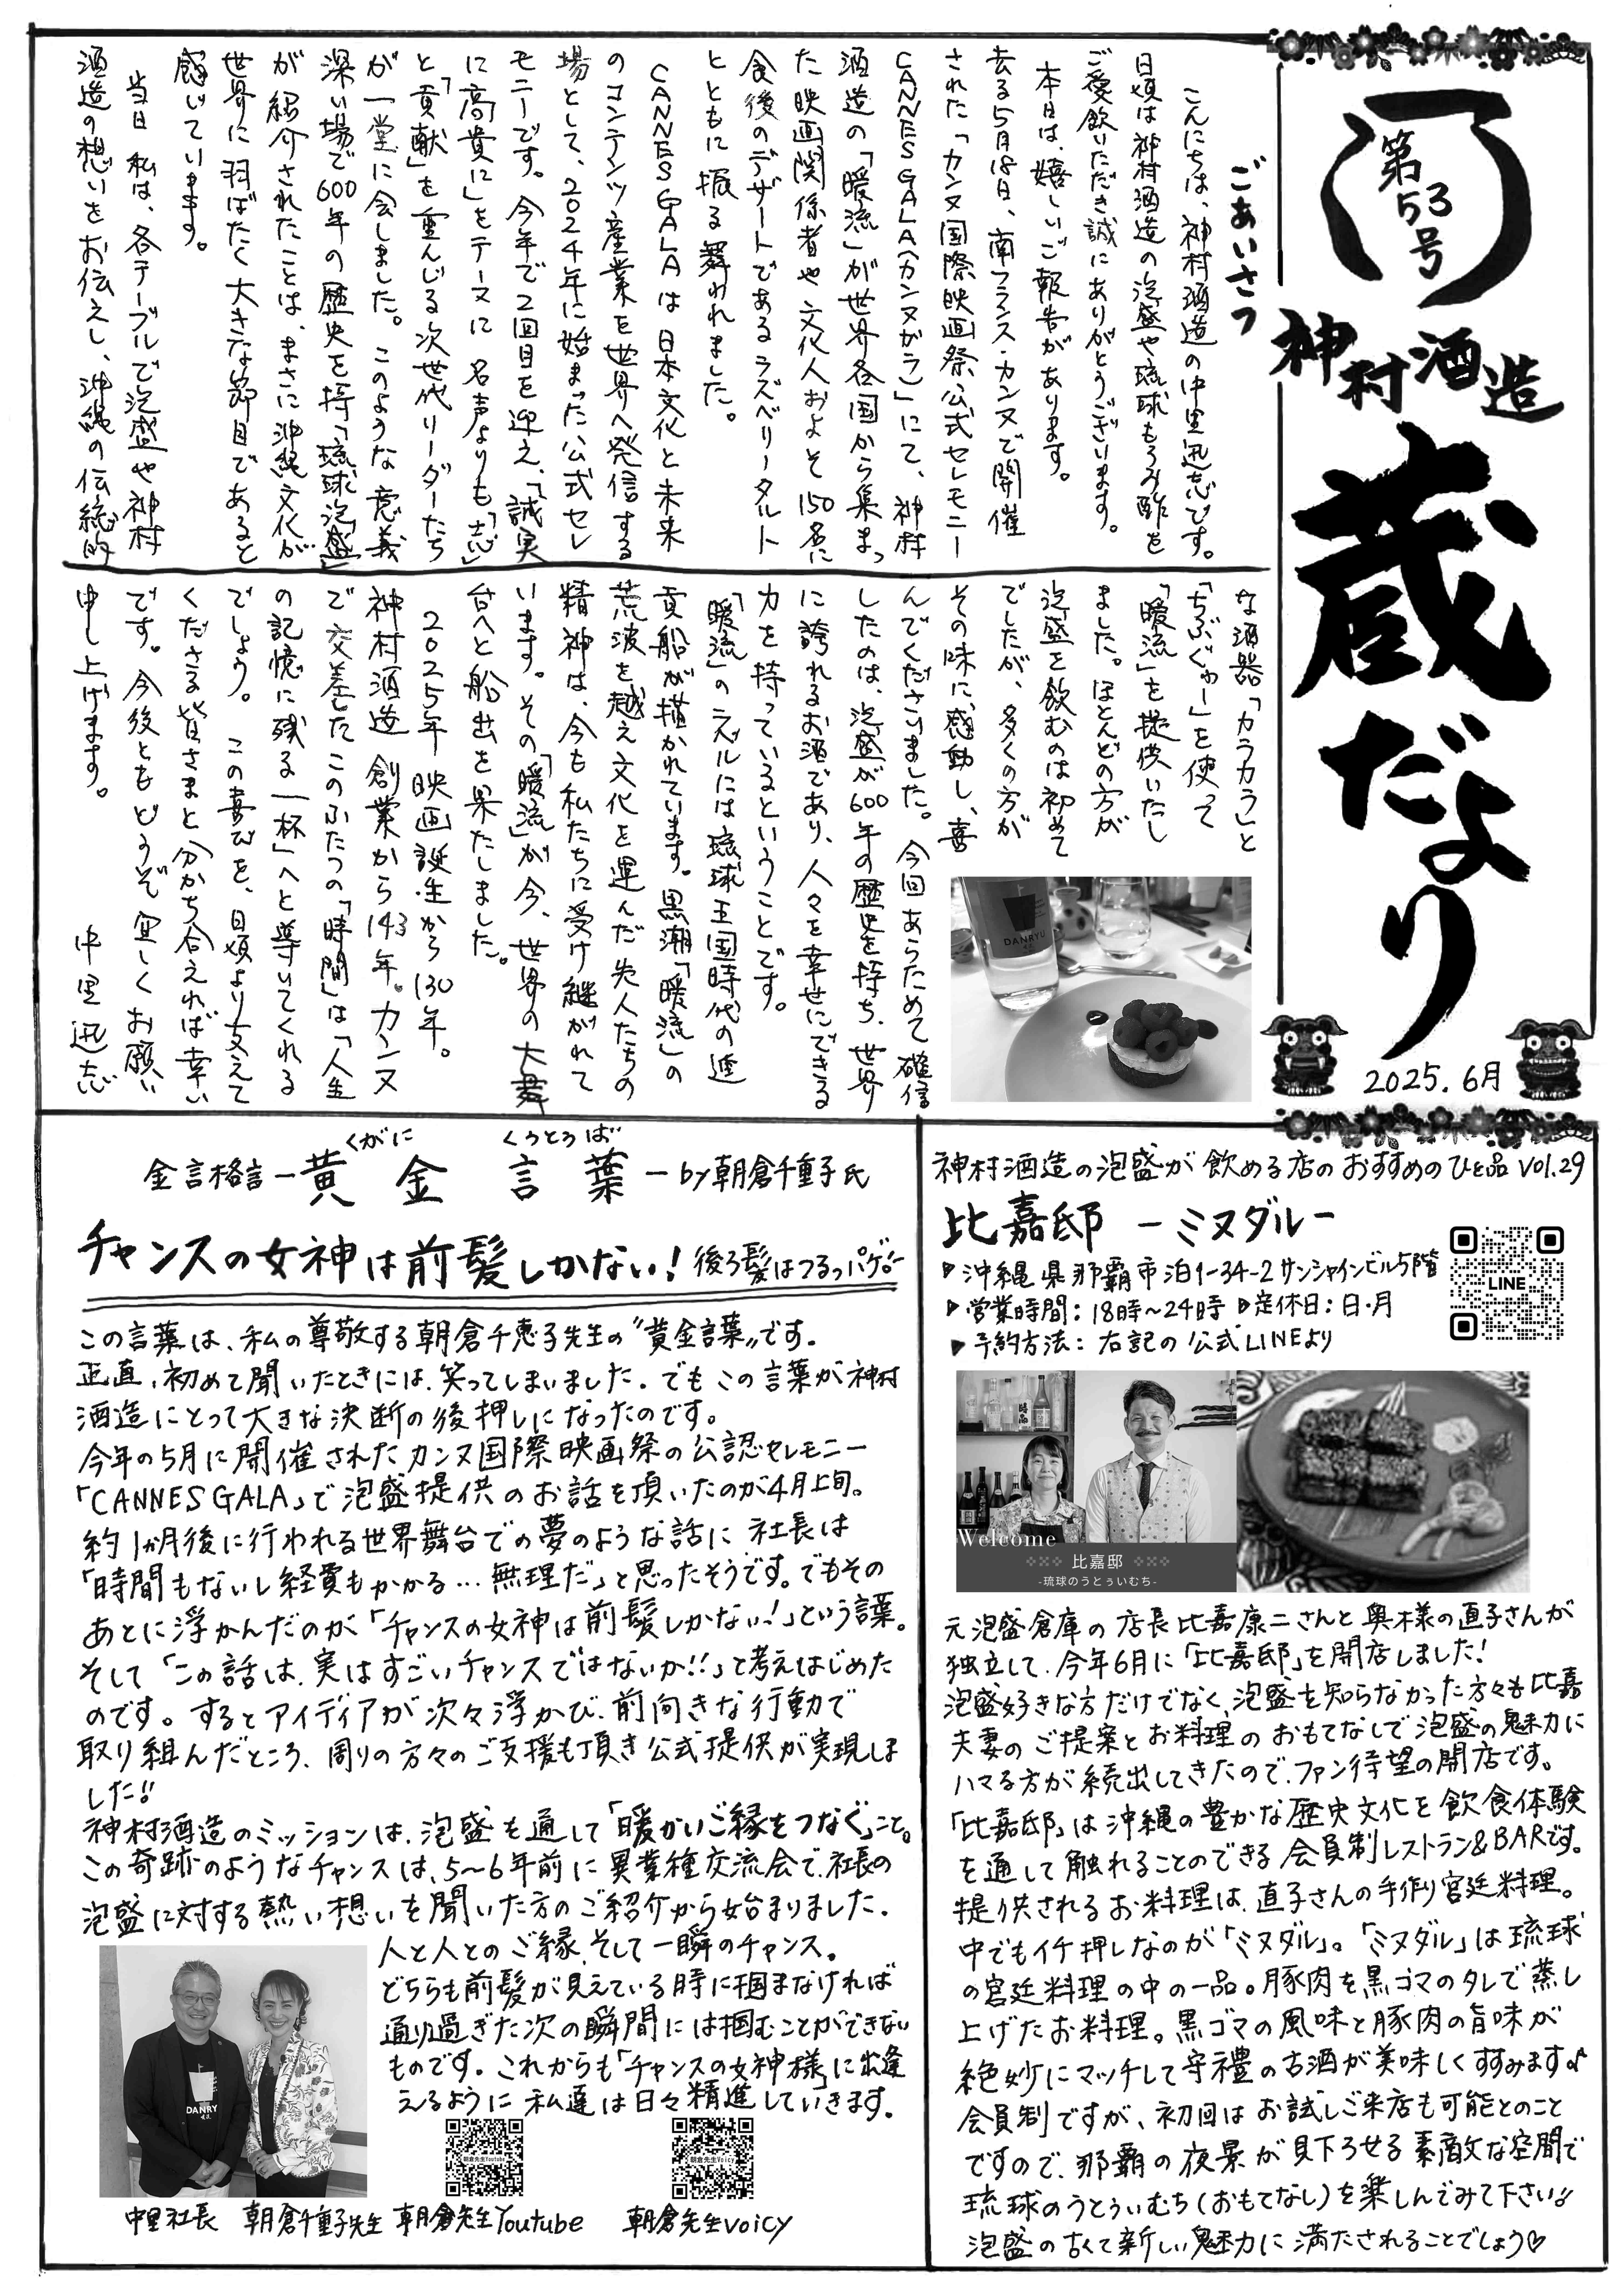 第53号
神村酒造
蔵だより
2025.6月
ごあいさつ
こんにちは、神村酒造の中里迅志です。
日頃は神村酒造の泡盛や琉球もろみ酢を
ご愛飲いただき誠にありがとうございます。
本日は、嬉しいご報告があります。
去る5月18日、南フランス・カンヌで開催
された「カンヌ国際映画祭公式セレモニー
CANNES GALA(カンヌガラ)」にて、神村
酒造の「暖流」が世界各国から集まっ
た映画関係者や文化人およそ150名に
食後のデザートであるラズベリータルト
とともに振る舞われました。
CANNES GALAは日本文化と未来
のコンテンツ産業を世界へ発信する
場として、2024年に始まった公式セレ
モニーです。今年で2回目を迎え、「誠実
に高貴に」をテーマに名声よりも「志」
と「貢献」を重んじる次世代リーダーたち
が一堂に会しました。このような意義
深い場で600年の歴史を持つ「琉球泡盛」
が紹介されたことは、まさに沖縄文化が
世界に羽ばたく大きな節目であると
感じています。
当日私は、各テーブルで泡盛や神村
酒造の想いをお伝えし、沖縄の伝統的
な酒器「カラカラ」と
「ちぶぐゎー」を使って
「暖流」を提供いたし
ました。ほとんどの方が
泡盛を飲むのは初めて
でしたが、多くの方が
その味に感動し、喜
んでくださいました。今回あらためて確信
したのは、泡盛が600年の歴史を持ち、世界
に誇れるお酒であり、人々を幸せにできる
力を持っているということです。
「暖流」のラベルには琉球王国時代の進
貢船が描かれています。黒潮「暖流」の
荒波を越え文化を運んだ先人たちの
精神は、今も私たちに受け継がれて
います。その「暖流」が今、世界の大舞
台へと船出を果たしました。
2025年映画誕生から130年。
神村酒造創業から143年。カンヌ
で交差したこのふたつの「時間」は「人生
の記憶に残る一杯」へと導いてくれる
でしょう。この喜びを、日頃より支えて
くださる皆さまと分かち合えれば幸い
です。今後ともどうぞ宜しくお願い
申し上げます。 中里迅志
DANRYU
金言格言ー黄金言葉ーby朝倉千恵子氏
くがに くとぅば
チャンスの女神は前髪しかない!後ろ髪はつるっパゲ!
この言葉は、私の尊敬する朝倉千恵子先生の“黄金言葉”です。
正直、初めて聞いたときには、笑ってしまいました。でもこの言葉が神村
酒造にとって大きな決断の後押しになったのです。
今年の5月に開催されたカンヌ国際映画祭の公認セレモニー
「CANNES GALA」で泡盛提供のお話を頂いたのが4月上旬。
約1か月後に行われる世界舞台での夢のような話に社長は
「時間もないし経費もかかる…無理だ」と思ったそうです。でもその
あとに浮かんだのが「チャンスの女神は前髪しかない!」という言葉。
そして「この話は、実はすごいチャンスではないか!!」と考えはじめた
のです。するとアイディアが次々浮かび、前向きな行動で
取り組んだところ、周りの方々のご支援も頂き公式提供が実現しま
した!!
神村酒造のミッションは、泡盛を通して「暖かいご縁をつなぐ」こと。
この奇跡のようなチャンスは、5〜6年前に異業種交流会で、社長の
泡盛に対する熱い想いを聞いた方のご紹介から始まりました。
人と人とのご縁、そして一瞬のチャンス。
どちらも前髪が見えている時に掴まなければ
通り過ぎた次の瞬間には掴むことができない
ものです。これからも「チャンスの女神様」に出逢
えるように私達は日々精進していきます。
DANRYU
朝倉先生Youtube
朝倉先生Voicy
中里社長 朝倉千恵子先生 朝倉先生Youtube 朝倉先生voicy
神村酒造の泡盛が飲める店のおすすめのひと品 vol.29
比嘉邸 ーミヌダルー
▶沖縄県那覇市泊1-34-2サンシャインビル5階
▶営業時間:18時〜24時 ▶定休日:日・月
▶予約方法:右記の公式LINEより
LINE
Welcome
比嘉邸
-琉球のうとぅいむち-
元泡盛倉庫の店長比嘉康二さんと奥様の直子さんが
独立して、今年6月に「比嘉邸」を開店しました!
泡盛好きな方だけでなく、泡盛を知らなかった方々も比嘉
夫妻のご提案とお料理のおもてなしで泡盛の魅力に
ハマる方が続出してきたので、ファン待望の開店です。
「比嘉邸」は沖縄の豊かな歴史文化を飲食体験
を通して触れることのできる会員制レストラン&BARです。
提供されるお料理は、直子さんの手作り宮廷料理。
中でもイチ押しなのが「ミヌダル」。「ミヌダル」は琉球
の宮廷料理の中の一品。豚肉を黒ゴマのタレで蒸し
上げたお料理。黒ゴマの風味と豚肉の旨味が
絶妙にマッチして守禮の古酒が美味しくすすみます♪
会員制ですが、初回はお試しご来店も可能とのこと
ですので、那覇の夜景が見下ろせる素敵な空間で
琉球のうとぅいむち(おもてなし)を楽しんでみて下さい!!
泡盛の古くて新しい魅力に満たされることでしょう♡